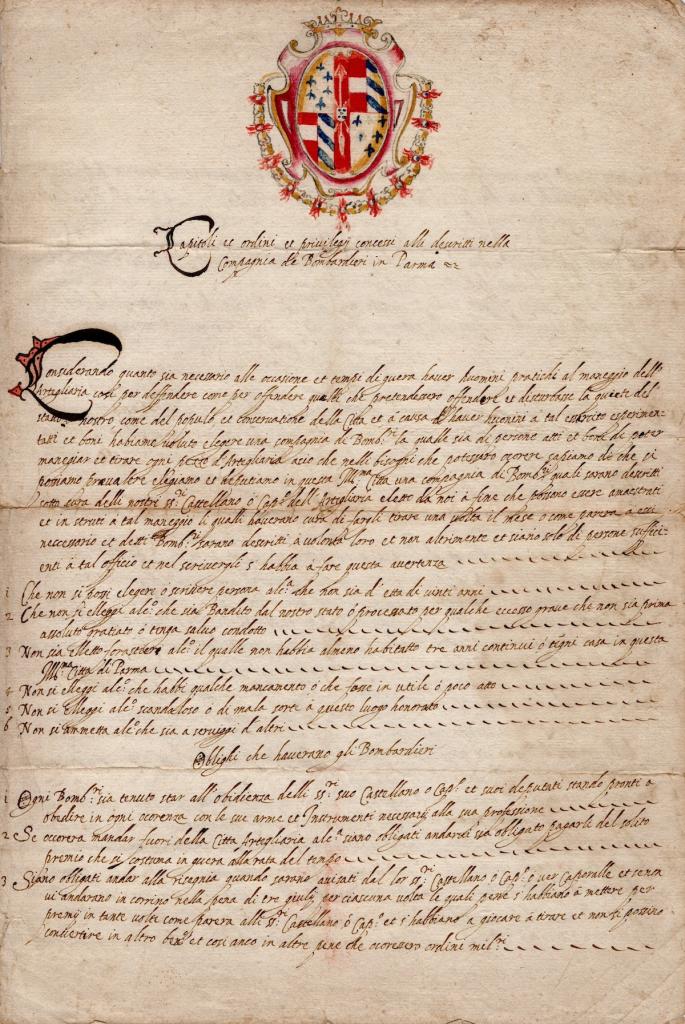 Capitoli et ordini et privilegij concessi alli descritti nella
Compagnia de Bombardieri in Parma
Considerando quanto sia necessario alle occasione et tempi di guera haver huomini pratichi al maneggio dell'
Artigliaria cosi per deffendere come per offendere quelli che pretendessero offendere et disturbare la quiete del
stato nostro come del populo et conservatione della Citta et à causa d' haver huomini à tal essercito esperimen-
tati et boni habiamo voluto elegere una compagnia di Bomb.ri la quale sia di persone atti et boni di poter
manegiar et tirare ogni pezzo d'Artigliaria acio che nelli bisogni che potessero ocorere sapiamo di che si
potiamo prevalere elegiamo et in questa Ill.ma Citta una compagnia di Bomb.ri quali sarano descritti
sotto cura delli nostri ss.ri Castellano ò Cap.o dell'Artigliaria eletto da noi à fine che possono essere amaestrati
et in strutti à tal maneggio li quali haverano cura di fargli tirare una volta il mese o come parera à essi
necessario et detti Bomb.ri sarano descritti à volonta loro et non altrimente et siano solo di persone suffici-
enti à tal officio et nel scrivergli s' habbia à fare questa avertenza
1 Che non si possi elegere ò scrivere persona alc.a che non sia d' etta di vinti anni
2 Che non si elleggi alc.o che sia Bandito dal nostro stato ò processato per qualche ecesso grave che non sia prima
assoluto gratiato ò tenga salvo condotto
3 Non sia elletto forastiero alc.o il qualle non habbia almeno habitatto tre anni continui ò tenghi casa in questa
Ill.ma Citta di Parma
4 Non si elleggi alc.o che habbi qualche mancamento ò che fosse in utile ò poco atto
5 Non si elleggi alc.o scandaloso ò di mala sorte à questo luogo honorato
6 Non si ammetta alc.o che sia a servigij d' altri
Oblighi che haverano gli Bombardieri
1 Ogni Bomb.ri sia tenuto star all' obidienza delli ss.ri suo Castellano ò Cap.o et suoi deputati stando pronti a
obedire in ogni ocorenza con le sue arme et Instrumenti necessarij alla sua professione
2 Se occorera mandar fuori della Citta Artigliaria alc.a siano obligati andarvi sia obligato pagarli del solito
premio che si costuma in guera alla rata del tempo
3 Siano obligati andar alla risegnia quando sarano avisati dal lor ss.ri Castellano ò Cap.o ò ver Caporalle et se non
vi andarano in corrino nella pena di tre giulij per ciascuna volta le quali pene s' habbiano à mettere per
premij in tante volte come parera alli ss.ri Castellano ò Cap.o et s' habbiano a giocare à tirare et non si possino
convertire in altro et cosi anco in altre pene che ocoressero ordini mil.ri